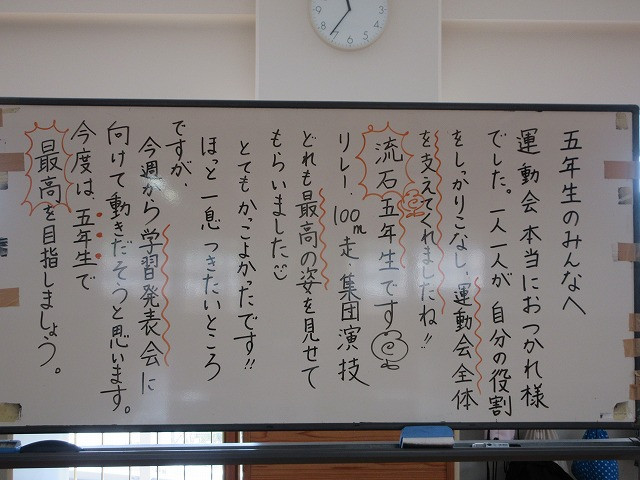 五年生のみんなへ
運動会本当におつかれ様
でした。一人一人が自分の役割
をしっかりこなし、運動会全体
を支えてくれましたね!!
流石五年生です
リレー、100m走、集団演技
どれも最高の姿を見せて
もらいました
とてもかっこよかったです!!
ほっと一息つきたいところ
ですが、
今週から学習発表会に
向けて動きだそうと思います。
今度は、五年生で
最高を目指しましょう。